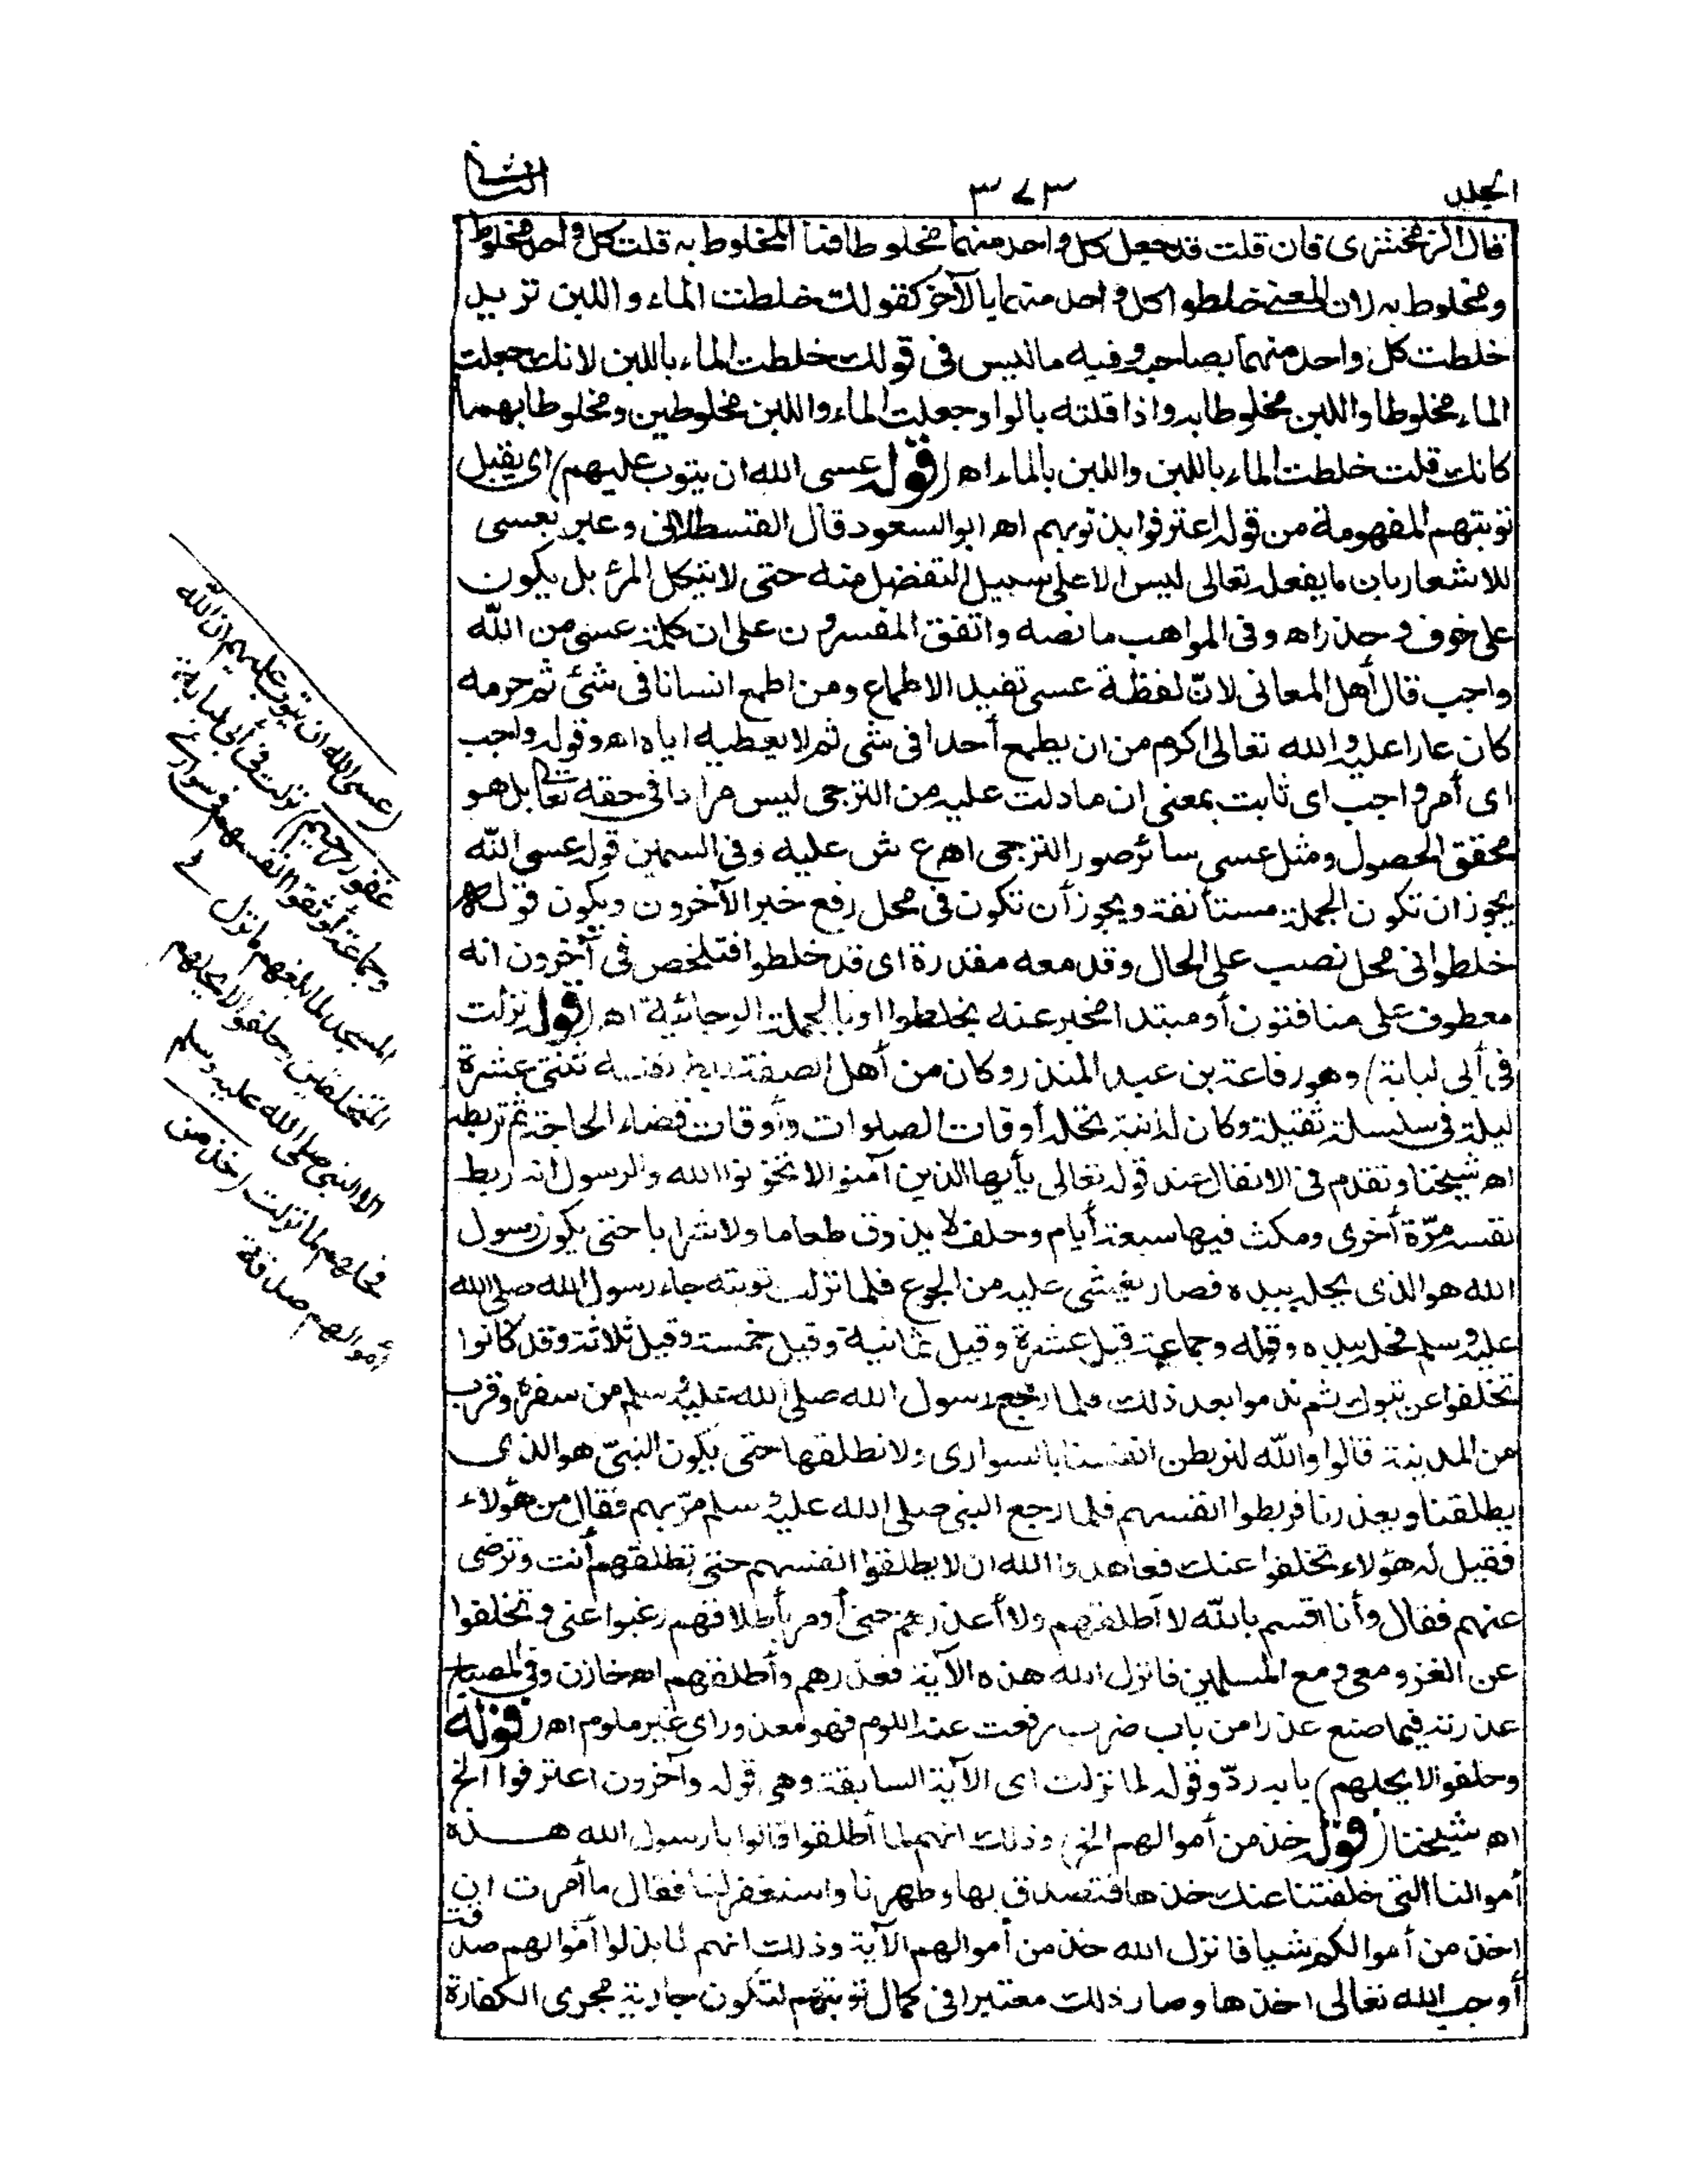 الجلد
٣٧٣
الثانى
قال الزمخشرى فان قلت قد جعل كل واحد منهما مخلوطا فما المخلوط به قلت كل واحد مخلوط
ومخلوط به لان المعنى خلطوا كل واحد منهما بالآخر كقولك خلطت الماء واللبن تريد
خلطت كل واحد منهما بصاحبه وفيه ما ليس فى قولك خلطت الماء باللبن لانك جعلت
الماء مخلوطا واللبن مخلوطا به واذا قلته بالواو جعلت الماء واللبن مخلوطين ومخلوطا بهما
كانك قلت خلطت الماء باللبن واللبن بالماء اه (قوله عسى الله ان يتوب عليهم) اى يقبل
توبتهم المفهومة من قوله اعترفوا بذنوبهم اه ابو السعود قال القسطلانى وعبر بعسى
للاشعار بان ما يفعله تعالى ليس الا على سبيل التفضل منه حتى لا يتكل المرء بل يكون
على خوف وحذر اه وفى المواهب ما نصه واتفق المفسرون على ان كلمة عسى من الله
واجب قال أهل المعانى لانّ لفظة عسى تفيد الاطماع ومن اطمع انسانا فى شئ ثم حرمه
كان عارا عليه والله تعالى اكرم من ان يطمع أحدا فى شئ ثم لا يعطيه اياه اه وقوله واجب
اى أمر واجب اى ثابت بمعنى ان ما دلت عليه من الترجى ليس مرادا فى حقه تعالى بل هو
محقق الحصول ومثل عسى سائر صور الترجى اه ع ش عليه وفى السمين قوله عسى الله
يجوز ان تكون الجملة مستأنفة ويجوز أن تكون فى محل رفع خبر الآخرون ويكون قوله
خلطوا فى محل نصب على الحال وقد معه مقدرة اى قد خلطوا فتلخص فى آخرون انه
معطوف على منافقون أو مبتدا مخبر عنه بخلطوا او بالجملة الرجائية اه (قوله نزلت
فى أبى لبابة) وهو رفاعة بن عبد المنذر وكان من أهل الصفة ربط نفسه ثنتى عشرة
ليلة فى سلسلة ثقيلة وكان له ابنة تحله أوقات الصلوات وأوقات قضاء الحاجة ثم تربطه
اه شيخنا وتقدم فى الانفال عند قوله تعالى يأيها الذين آمنوا لا تخونوا الله والرسول انه ربط
نفسه مرّة أخرى ومكث فيها سبعة أيام وحلف لا يذوق طعاما ولا شرابا حتى يكون رسول
الله هو الذى يحله بيده فصار يغشى عليه من الجوع فلما نزلت توبته جاء رسول الله صلى الله
عليه وسلم فحله بيده وقوله وجماعة قيل عشرة وقيل ثمانية وقيل خمسة وقيل ثلاثة وقد كانوا
تخلفوا عن تبوك ثم ندموا بعد ذلك فلما رجع رسول الله صلى الله عليه وسلم من سفره وقرب
من المدينة قالوا والله لنربطن انفسنا بالسوارى ولا نطلقها حتى يكون النبىّ هو الذى
يطلقنا ويعذرنا فربطوا انفسهم فلما رجع النبى صلى الله عليه وسلم مرّ بهم فقال من هؤلاء
فقيل له هؤلاء تخلفوا عنك فعاهدوا الله ان لا يطلقوا انفسهم حتى تطلقهم أنت وترضى
عنهم فقال وأنا اقسم بالله لا أطلقهم ولا أعذرهم حتى أومر بأطلاقهم رغبوا عنى وتخلفوا
عن الغزو معى ومع المسلمين فانزل الله هذه الآية فعذرهم وأطلقهم اه خازن وفى المصباح
عذرته فيما صنع عذرا من باب ضرب رفعت عنه اللوم فهو معذور اى غير ملوم اه (قوله
وحلفوا لا يحلهم) بابه ردّ وقوله لما نزلت اى الآية السابقة وهى قوله وآخرون اعترفوا الخ
اه شيخنا (قوله خذ من أموالهم الخ) وذلك انهم لما أطلقوا قالوا يا رسول الله هذه
أموالنا التى خلفتنا عنك خذها فتصدق بها وطهرنا واستغفر لنا فقال ما أمرت ان
اخذ من أموالكم شيا فانزل الله خذ من أموالهم الآية وذلك انهم لما بذلوا أموالهم صدقة
أوجب الله تعالى اخذها وصار ذلك معتبرا فى كمال توبتهم لتكون جارية مجرى الكفارة
(عسى الله ان يتوب عليهم ان الله
غفور رحيم) نزلت فى أبى لبابة
وجماعة أوثقوا انفسهم فى سوارى
المسجد لما بلغهم ما نزل فى
المتخلفين وحلفوا لا يحلهم
الا النبى صلى الله عليه وسلم
فحلهم لما نزلت (خذ من
أموالهم صدقة